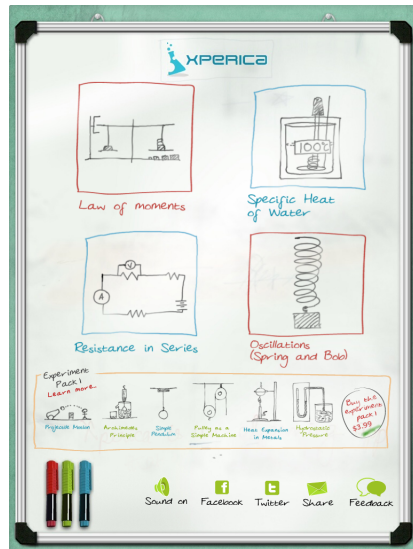 XPERICA
Law of moments
100°
Specific Heat
of Water
V
A
Resistance in Series
Oscillations
(Spring and Bob)
Experiment
Pack 1
Learn more...
Projectile Motion
Archimedes
Principle
Simple
Pendulum
Pulley as a
Simple Machine
Heat Expansion
in Metals
Hydrostatic
Pressure
Buy this
experiment
pack!
$3.99
Sound on
Facebook
Twitter
Share
Feedback